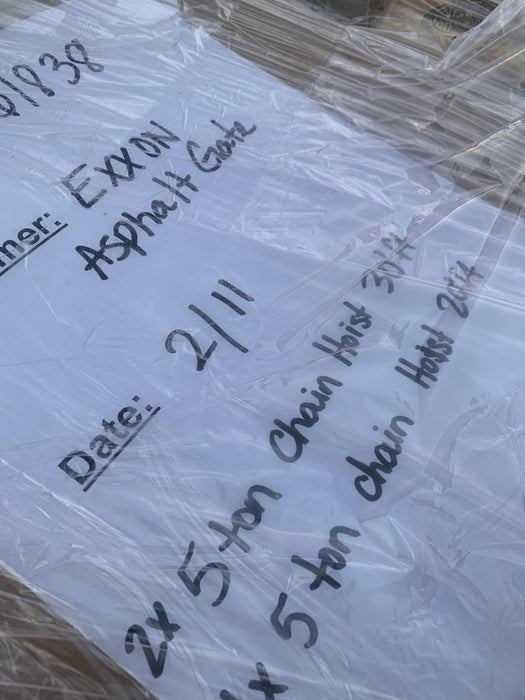 01838
mer: EXXON
Asphalt Gate
Date: 2/11
2x 5 ton Chain Hoist 30ft
x 5 ton chain Hoist 20ft